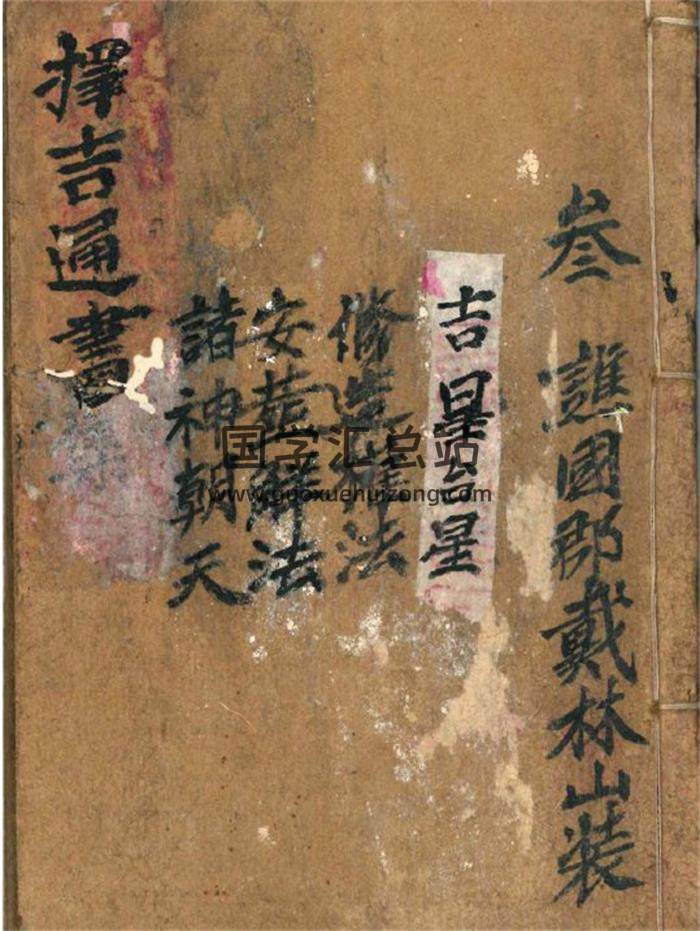 叁 譙國郡戴林山装
吉星 星
修造權法
安葬解法
諸神朝天
擇吉通書
国学汇总站
www.guoxuehuizong.com